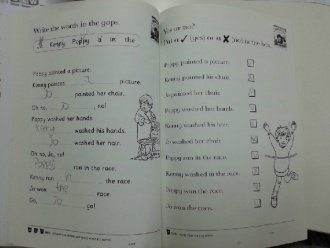 Write the words in the gaps.
Kenny Poppy a in the
Poppy painted a picture.
Kenny painted a picture.
Jo painted her chair.
Oh no, Jo, no!
Poppy washed her hands.
Kenny washed his hands.
Jo washed her hair.
Oh no, Jo, no!
Poppy ran in the race.
Kenny ran in the race.
Jo won the race.
Go, Jo, go!
Yes or no?
Put a ✓ (yes) or a ✗ (no) in the box.
Poppy painted a picture.
Kenny painted his chair.
Jo painted her chair.
Poppy washed her hands.
Kenny washed his hands.
Jo washed her hair.
Poppy ran in the race.
Kenny walked in the race.
Poppy won the race.
Jo won the race.